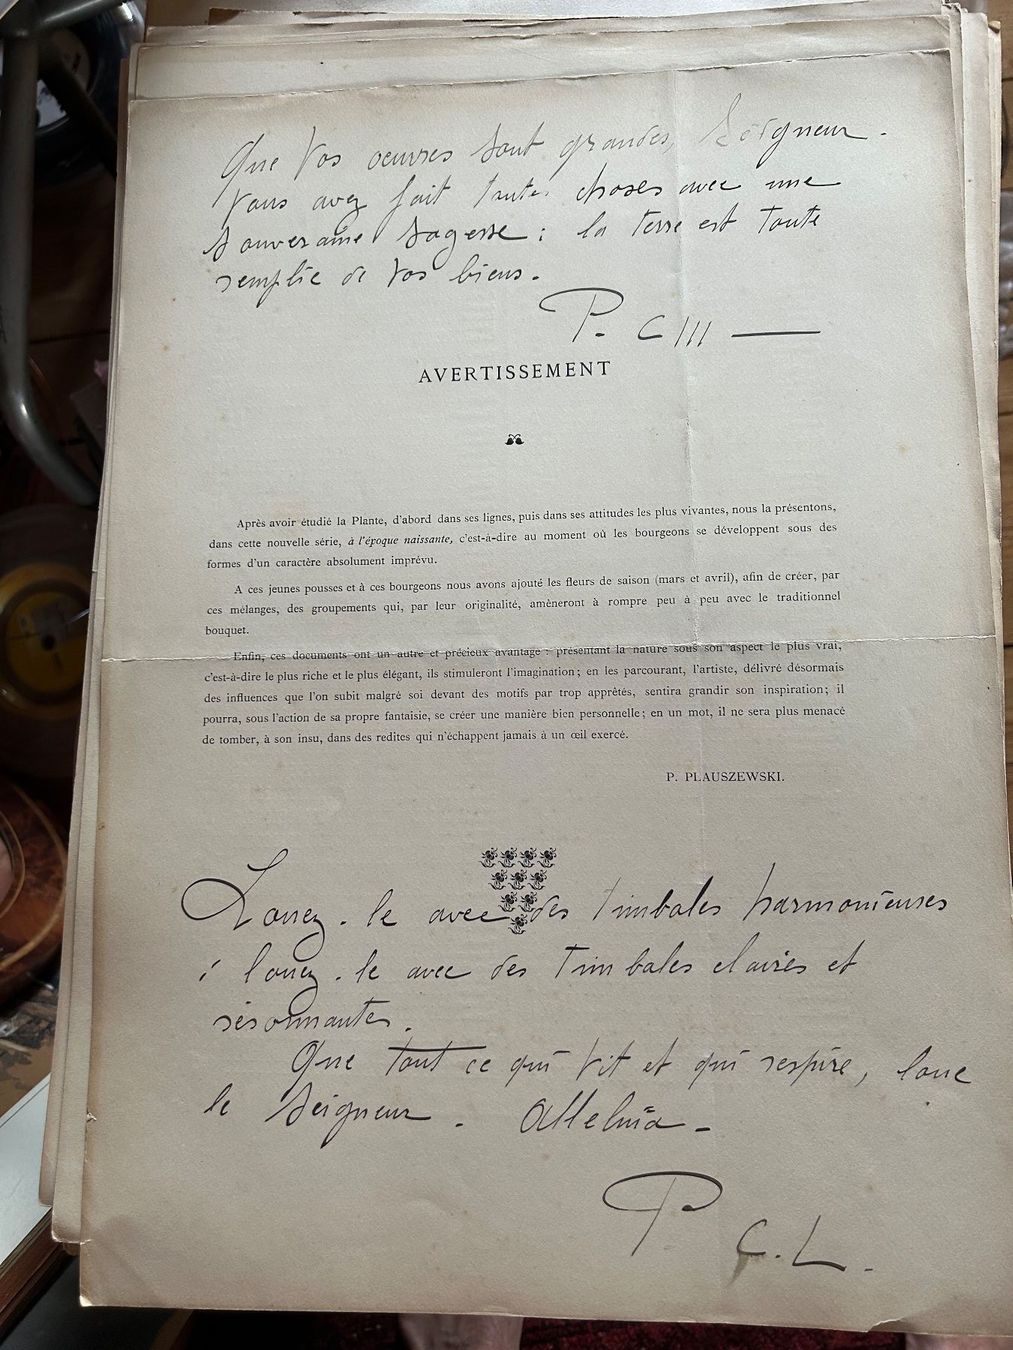 Que Vos oeuvres sont grandes, Seigneur.
Vous avez fait toutes choses avec une
souveraine sagesse : la terre est toute
remplie de Vos biens.
P. CIII —
AVERTISSEMENT
Après avoir étudié la Plante, d'abord dans ses lignes, puis dans ses attitudes les plus vivantes, nous la présentons,
dans cette nouvelle série, à l'époque naissante, c'est-à-dire au moment où les bourgeons se développent sous des
formes d'un caractère absolument imprévu.
A ces jeunes pousses et à ces bourgeons nous avons ajouté les fleurs de saison (mars et avril), afin de créer, par
ces mélanges, des groupements qui, par leur originalité, amèneront à rompre peu à peu avec le traditionnel
bouquet.
Enfin, ces documents ont un autre et précieux avantage : présentant la nature sous son aspect le plus vrai,
c'est-à-dire le plus riche et le plus élégant, ils stimuleront l'imagination ; en les parcourant, l'artiste, délivré désormais
des influences que l'on subit malgré soi devant des motifs par trop apprêtés, sentira grandir son inspiration ; il
pourra, sous l'action de sa propre fantaisie, se créer une manière bien personnelle ; en un mot, il ne sera plus menacé
de tomber, à son insu, dans des redites qui n'échappent jamais à un œil exercé.
P. PLAUSZEWSKI.
Louez-le avec des timbales harmonieuses
; louez-le avec des timbales claires et
résonnantes.
Que tout ce qui vit et qui respire, loue
le Seigneur. Alleluia -
P C.L.